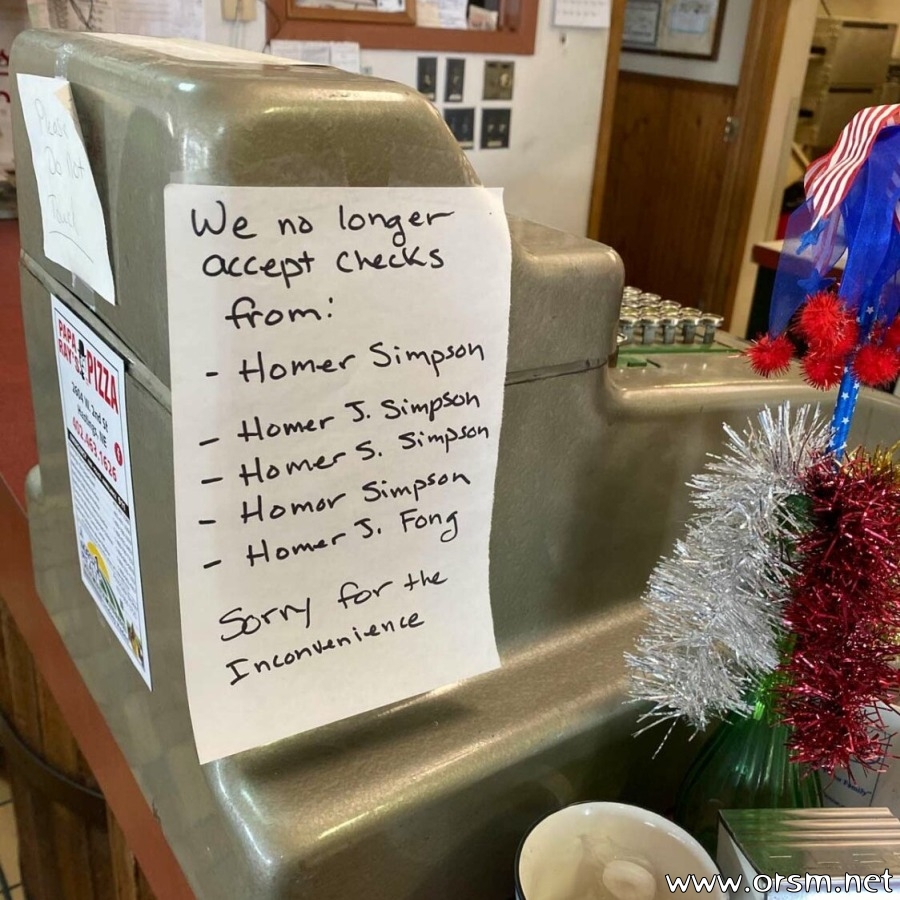 Please
Do Not
Touch
We no longer
accept checks
from:
- Homer Simpson
- Homer J. Simpson
- Homer S. Simpson
- Homor Simpson
- Homer J. Fong
Sorry for the
Inconvenience
PAPA RAY'S PIZZA
2604 W. 2nd St
Hastings, NE
402.463.1626
www.orsm.net